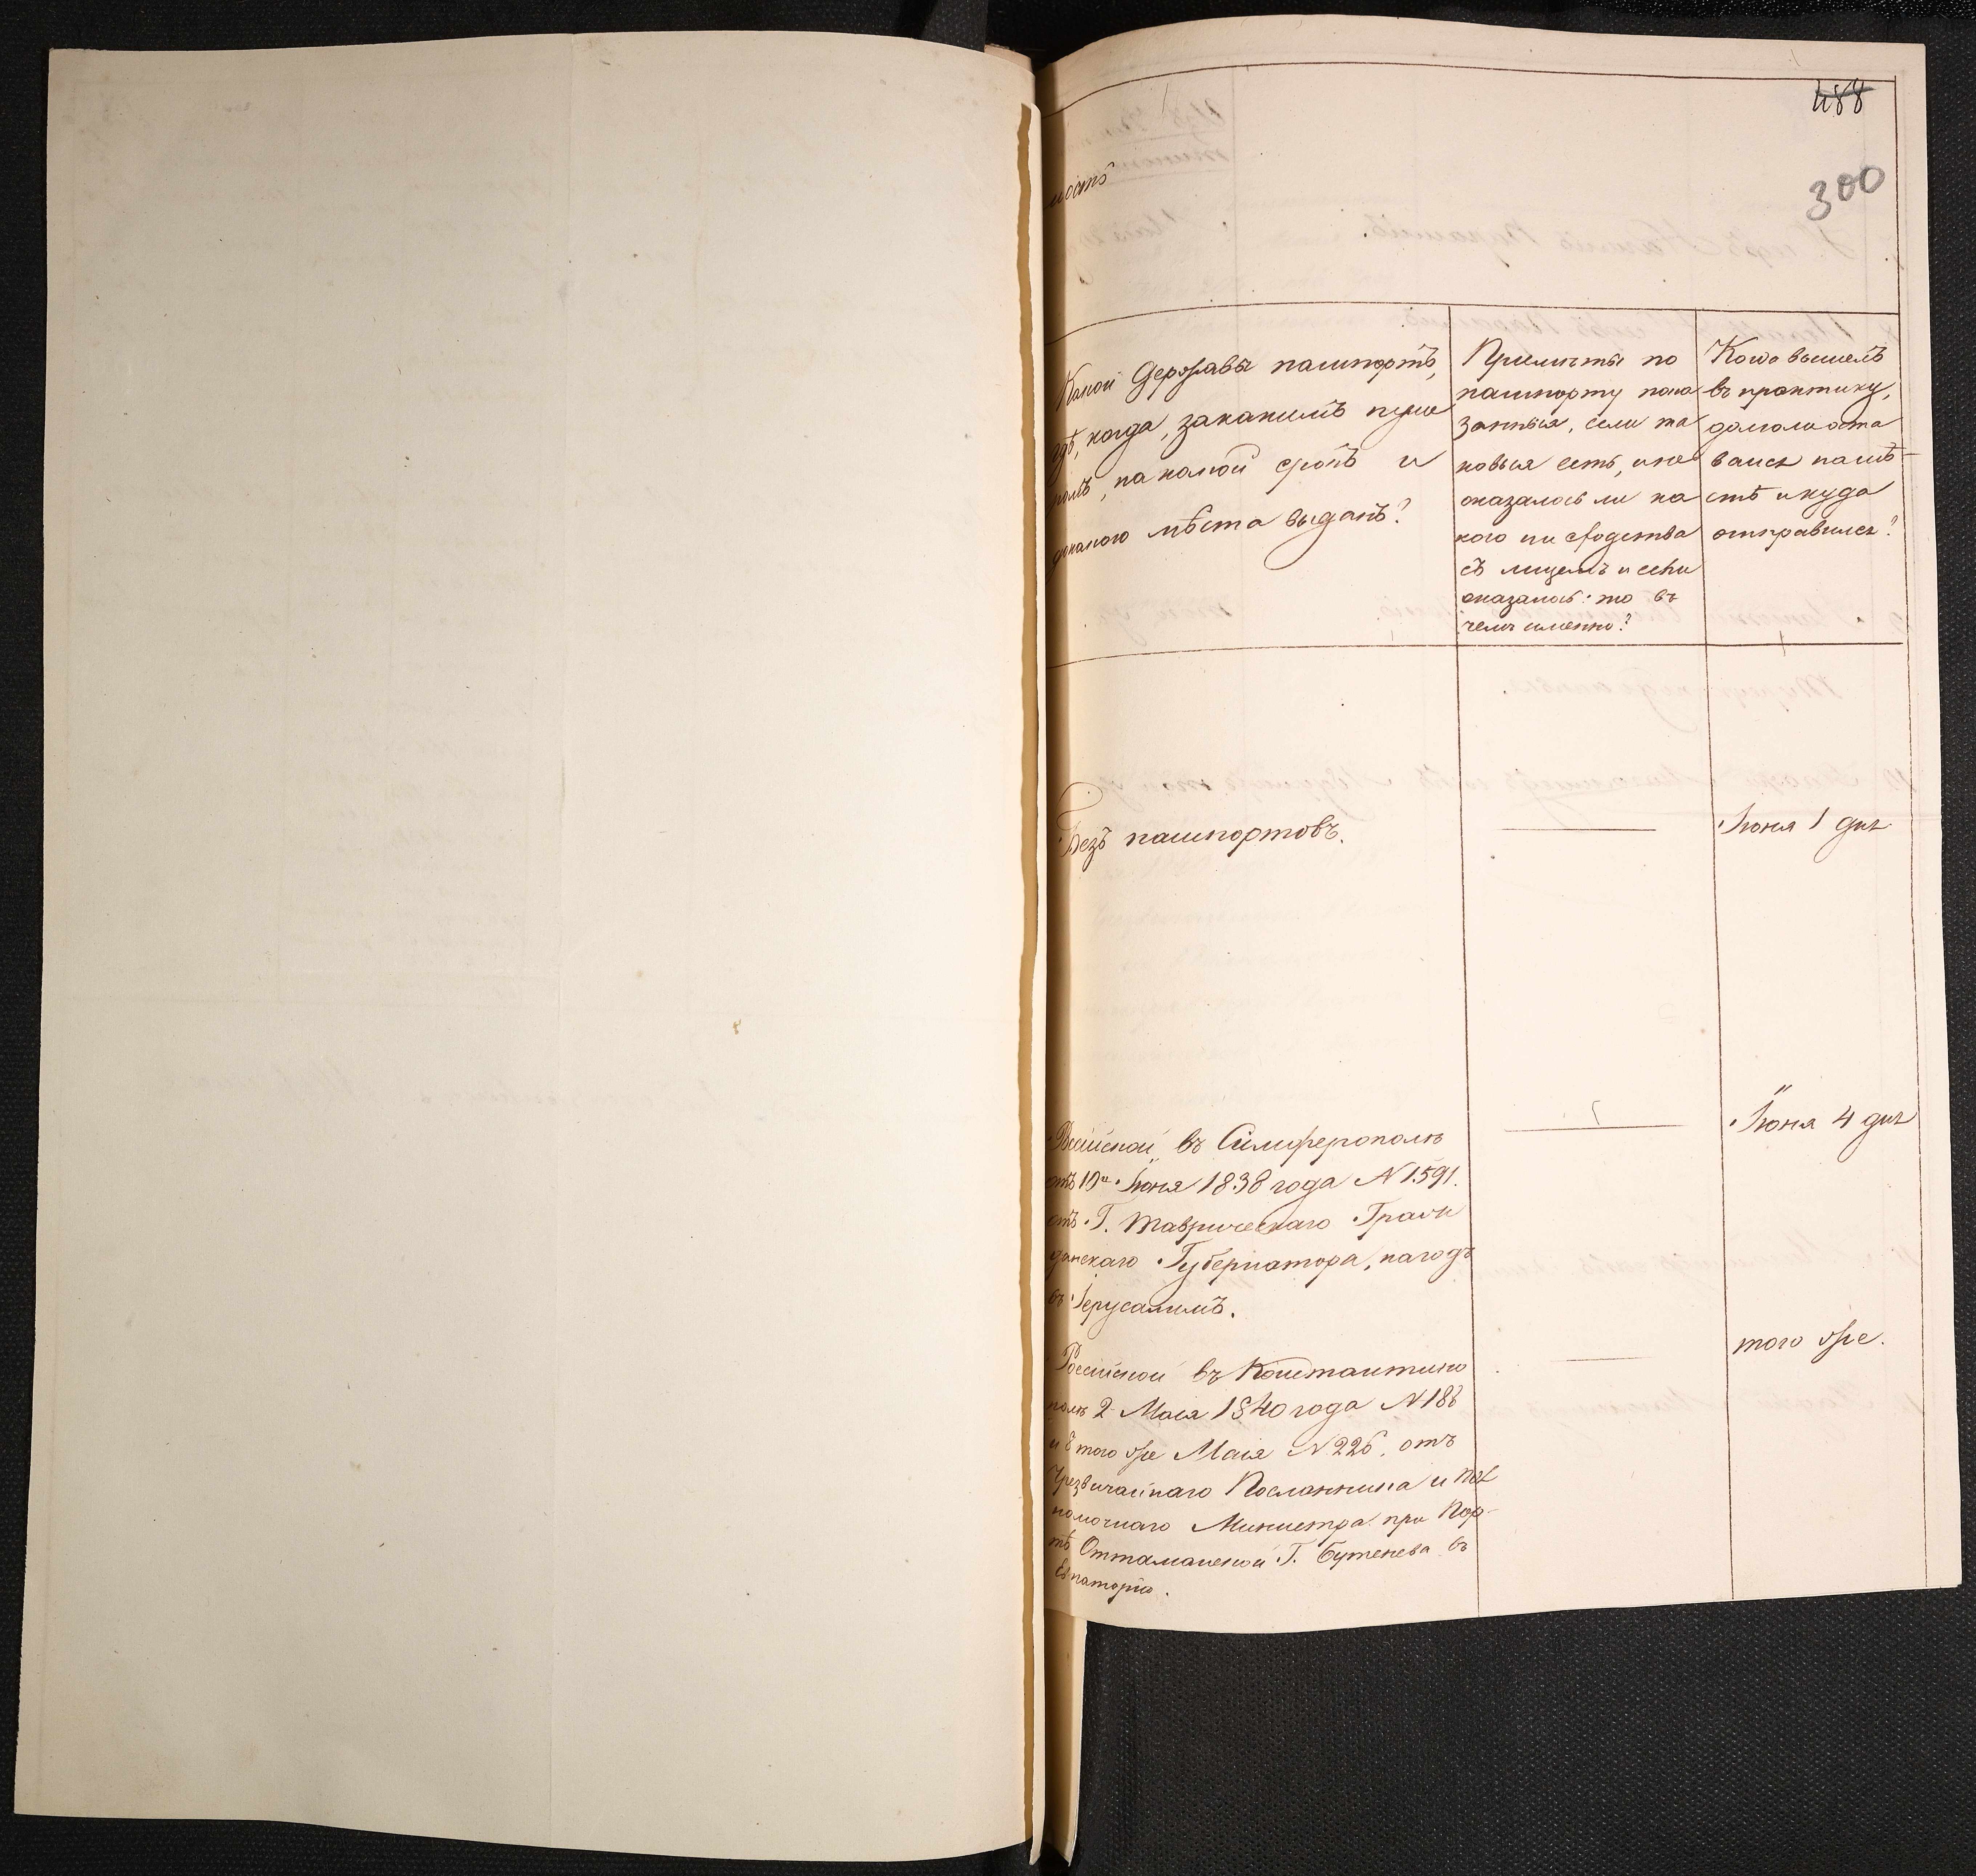 488
300
ность
Какой Державы пашпортъ,
гдѣ, когда, закакимъ нуме
ромъ, накакой срокъ и
докакого мѣста выданъ?
Примѣты по
пашпорту пока
занныя, если та
ковыя есть, и не
оказалось ли ка
кого ни сходства
съ лицемъ и если
оказалось: то въ
чемъ именно?
Кого вышелъ
въ практику,
долголи оста
вался намѣ-
стѣ икуда
отправился?
Безъ пашпортовъ.
Іюня 1 дня
Россійской, въ Симферополѣ
отъ 10го Іюня 1838 года N 1591.
отъ Г. Таврическаго Граж
данскаго Губернатора, нагодъ
въ Іерусалимъ.
Іюня 4 дня
Россійской въ Константино
полѣ 2 Маія 1840 года N 188
и 8 того же Маія N 226. отъ
Чрезвычайнаго Посланника и Пол
номочнаго Министра при Пор-
тѣ Оттаманской Г. Бутенева въ
Евпаторію.
того же.